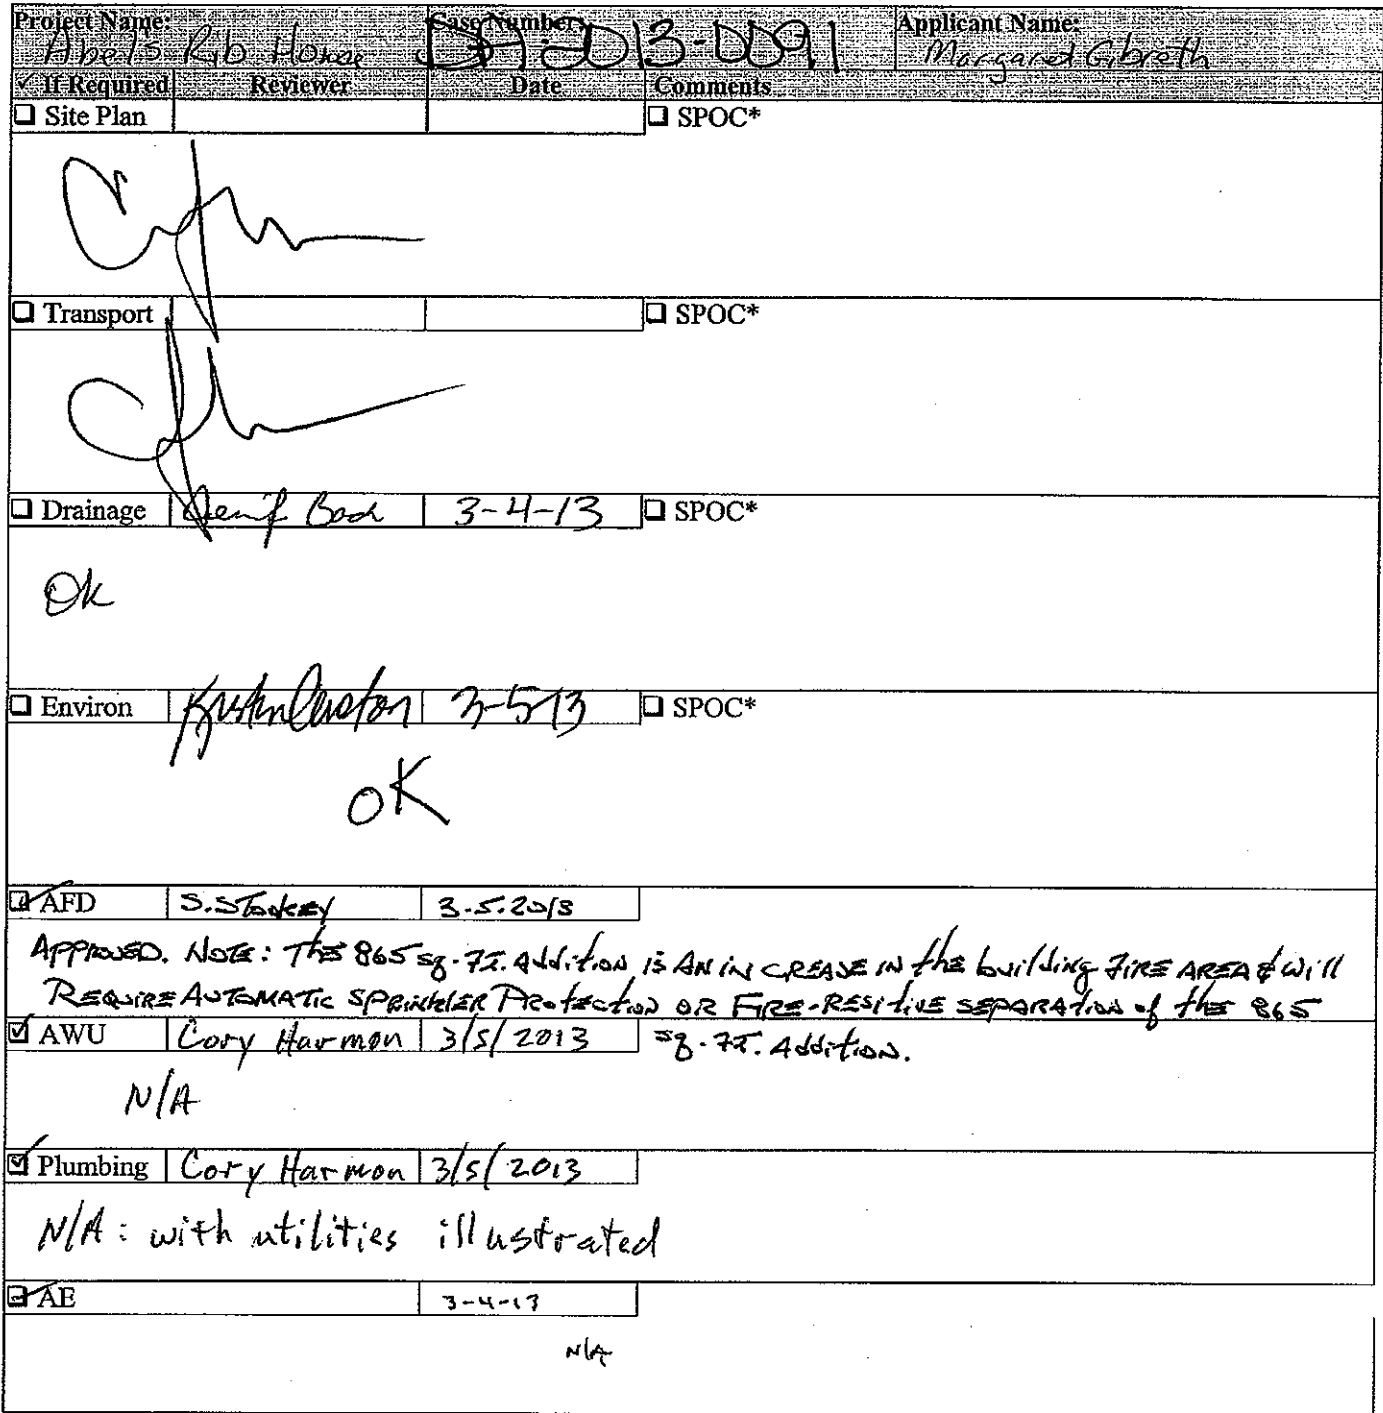 Project Name: Case Number: Applicant Name:
Abel's Rib House DA-2013-0091 Margaret Gibreth
✓ If Required Reviewer Date Comments
☐ Site Plan ☐ SPOC*
☐ Transport ☐ SPOC*
☐ Drainage 3-4-13 ☐ SPOC*
Ok
☐ Environ 3-5-13 ☐ SPOC*
OK
☑ AFD 3.5.2013
APPROVED. NOTE: THE 865 sq.FT. Addition is AN INCREASE IN the building FIRE AREA & will
REQUIRE AUTOMATIC SPRINKLER PROTECTION OR FIRE-RESITIVE SEPARATION of the 865
☑ AWU Cory Harmon 3/5/2013 sq.FT. Addition.
N/A
☑ Plumbing Cory Harmon 3/5/2013
N/A: with utilities illustrated
☑ AE 3-4-13
N/A